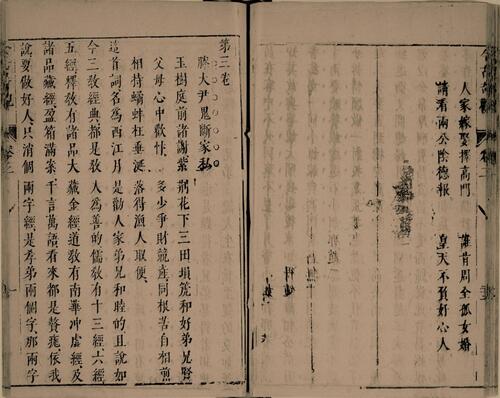 人家嫁娶擇高門　誰肯周全孤女婚
請看兩公陰德報　皇天不負好心人
第三卷
滕大尹鬼斷家私
玉樹庭前諸謝紫荊花下三田塤箎和好弟兄賢
父母心中歡忭　多少爭財競產同根苦自相煎
相持鷸蚌枉垂涎　落得漁人取便
這首詞名為西江月是勸人家弟兄和睦的且說如
今三敎經典都是敎人為善的儒敎有十三經六經
五經釋敎有諸品大藏金經道敎有南華冲虛經及
諸品藏經盈箱滿案千言萬語看來都是贅疣依我
說要做好人只消個兩字經是孝弟兩個字那兩字